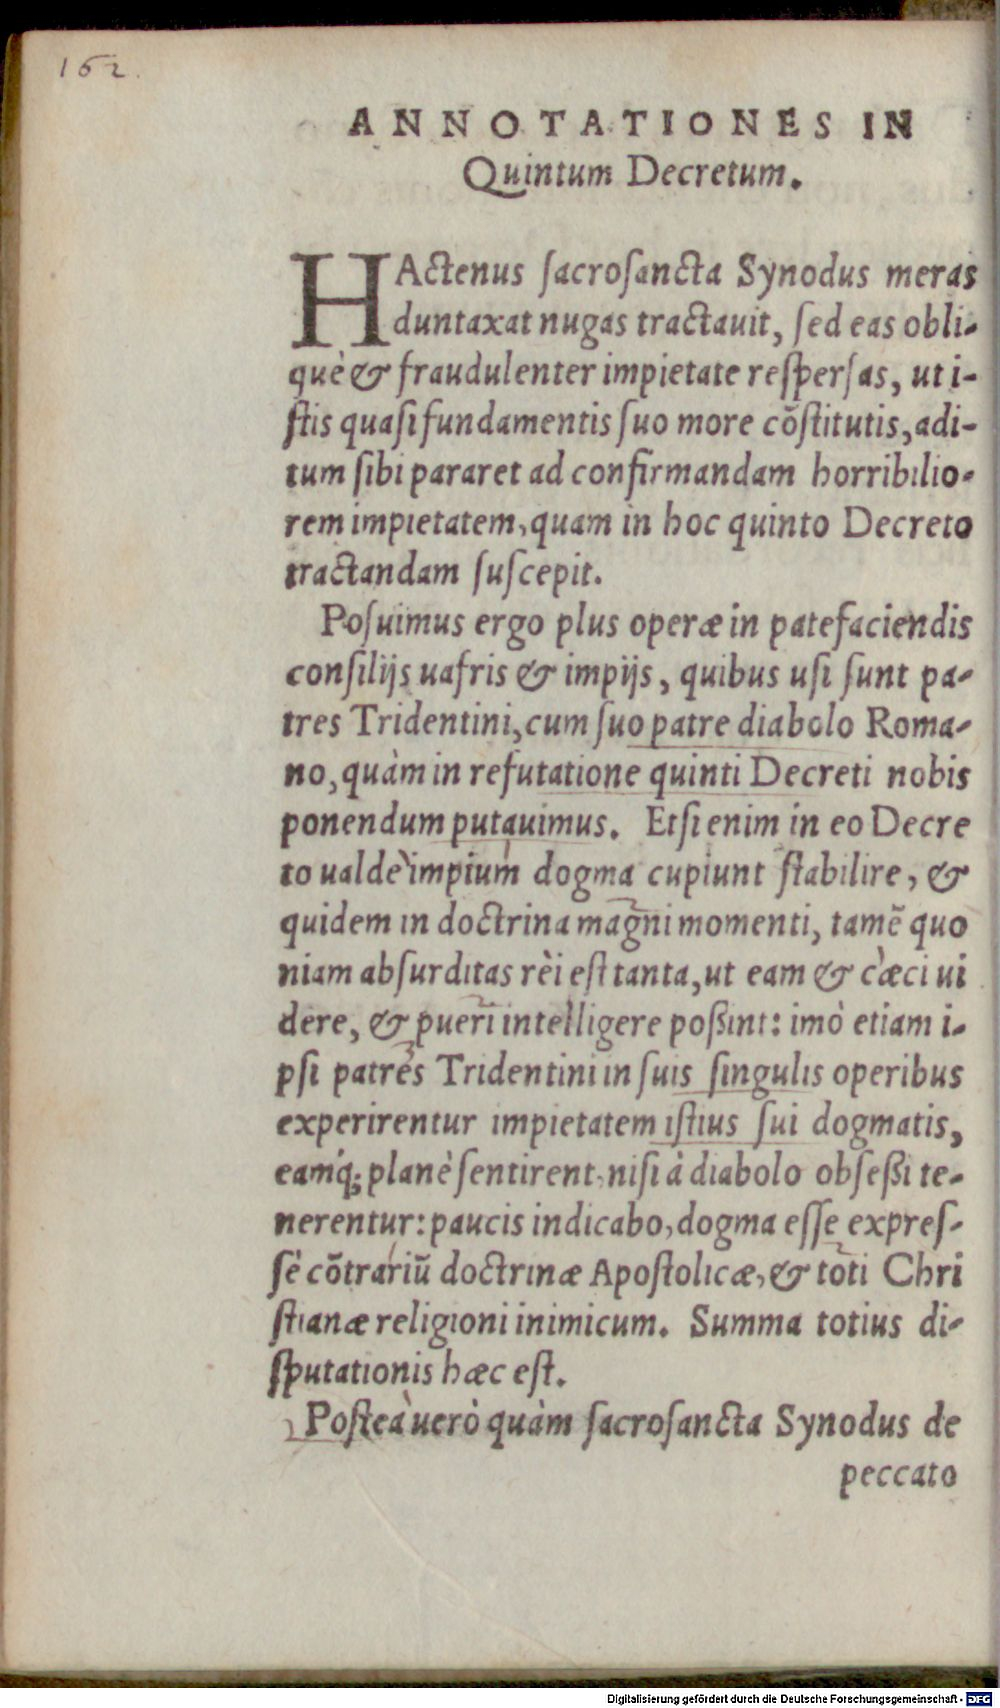 162.
ANNOTATIONES IN
Quintum Decretum.
HActenus ſacroſancta Synodus meras
duntaxat nugas tractauit, ſed eas obli-
què & fraudulenter impietate reſperſas, ut i-
ſtis quaſi fundamentis ſuo more cõſtitutis, adi-
tum ſibi pararet ad confirmandam horribilio-
rem impietatem, quam in hoc quinto Decreto
tractandam ſuſcepit.
Poſuimus ergo plus operæ in patefaciendis
conſilijs uafris & impijs, quibus uſi ſunt pa-
tres Tridentini, cum ſuo patre diabolo Roma-
no, quàm in refutatione quinti Decreti nobis
ponendum putauimus. Etſi enim in eo Decre
to ualdè impium dogma cupiunt ſtabilire, &
quidem in doctrina magni momenti, tamẽ quo
niam abſurditas rèi eſt tanta, ut eam & cæci ui
dere, & pueri intelligere poßint: imò etiam i-
pſi patres Tridentini in ſuis ſingulis operibus
experirentur impietatem iſtius ſui dogmatis,
eamq́; planè ſentirent, niſi à diabolo obſeßi te-
nerentur: paucis indicabo, dogma eſſe expreſ-
ſè cõtrariũ doctrinæ Apoſtolicæ, & toti Chri
ſtianæ religioni inimicum. Summa totius di-
ſputationis hæc eſt.
Poſteà uerò quàm ſacroſancta Synodus de
peccato
Digitalisierung gefördert durch die Deutsche Forschungsgemeinschaft - DFG